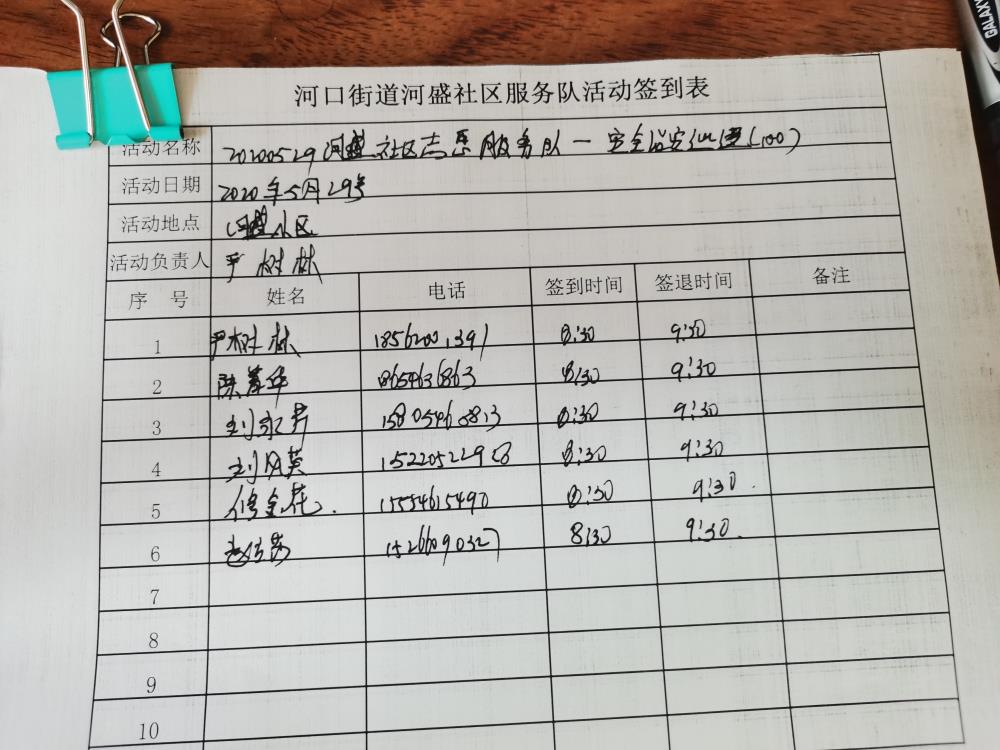 河口街道河盛社区服务队活动签到表
活动名称 20200529河盛社区志愿服务队一安全
活动日期 2020年5月29号
活动地点 河盛社区
活动负责人 尹树林
序 号 姓名 电话 签到时间 签退时间 备注
1 尹树林 18562001391 8:30 9:30
2 8:30 9:30
3 8:30 9:30
4 刘风英 8:30 9:30
5 修金花 15554615490 8:30 9:30
6 15266090327 8:30 9:30
7
8
9
10
GALAXY